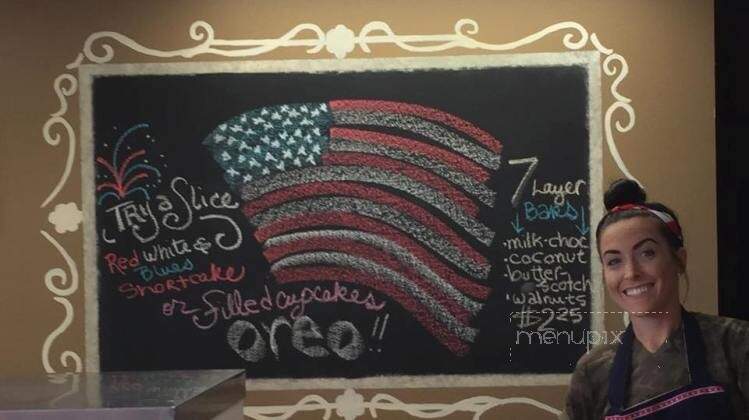 Try a Slice
Red White &
Blues
Shortcake
or filled cupcakes
oreo!!
7 Layer
Bars
·milk-choc
·coconut
·butter-
scotch
·walnuts
$2.25
menupix